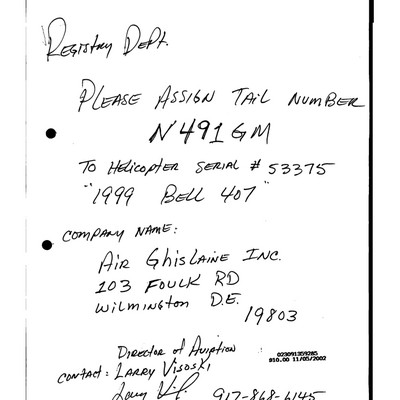 Registry Dept.
Please Assign Tail Number
N491GM
To Helicopter Serial # 53375
"1999 Bell 407"
Company Name:
Air Ghislaine Inc.
103 Foulk RD
Wilmington D.E.
19803
023091359285
$10.00 11/05/2002
Director of Aviation
Contact: Larry Visoski
917-868-6145